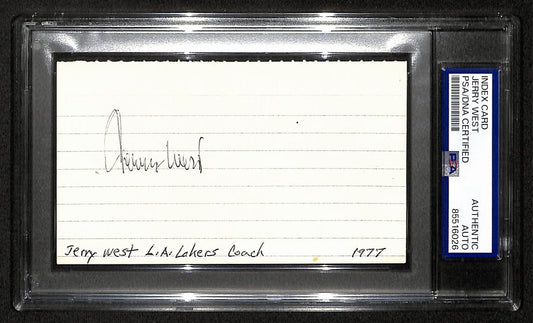 Jerry West
Jerry West L.A. Lakers Coach 1977
INDEX CARD
JERRY WEST
PSA/DNA CERTIFIED
PSA
AUTHENTIC
AUTO
85516026